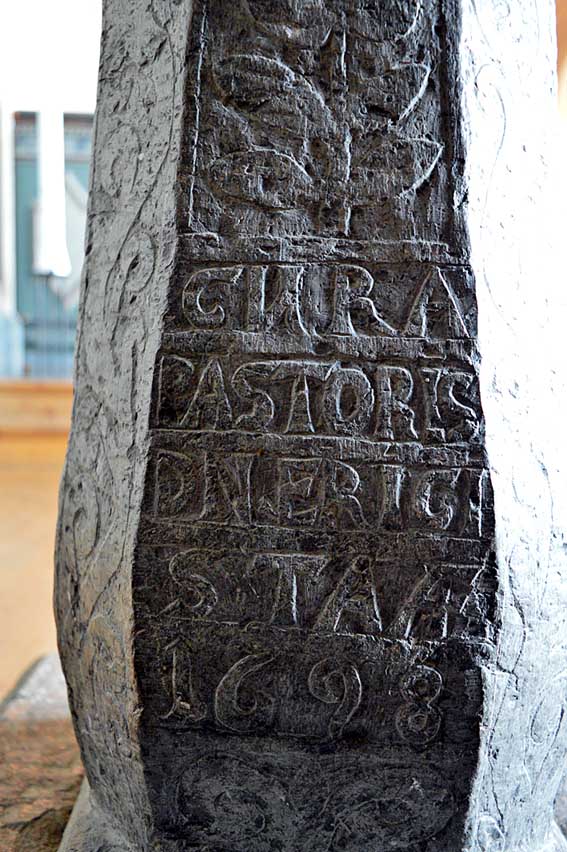 CURA
PASTORIS
DN ERICH
STAHL
1698